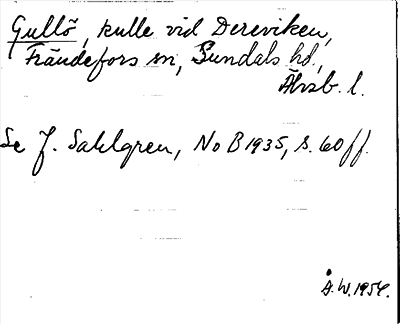 Gullö, kulle vid Dereviken,
Frändefors sn, Sundals hd,
Älvsb. l.
Se J. Sahlgren, NoB 1935, s. 60 ff.
Å. W. 1954.